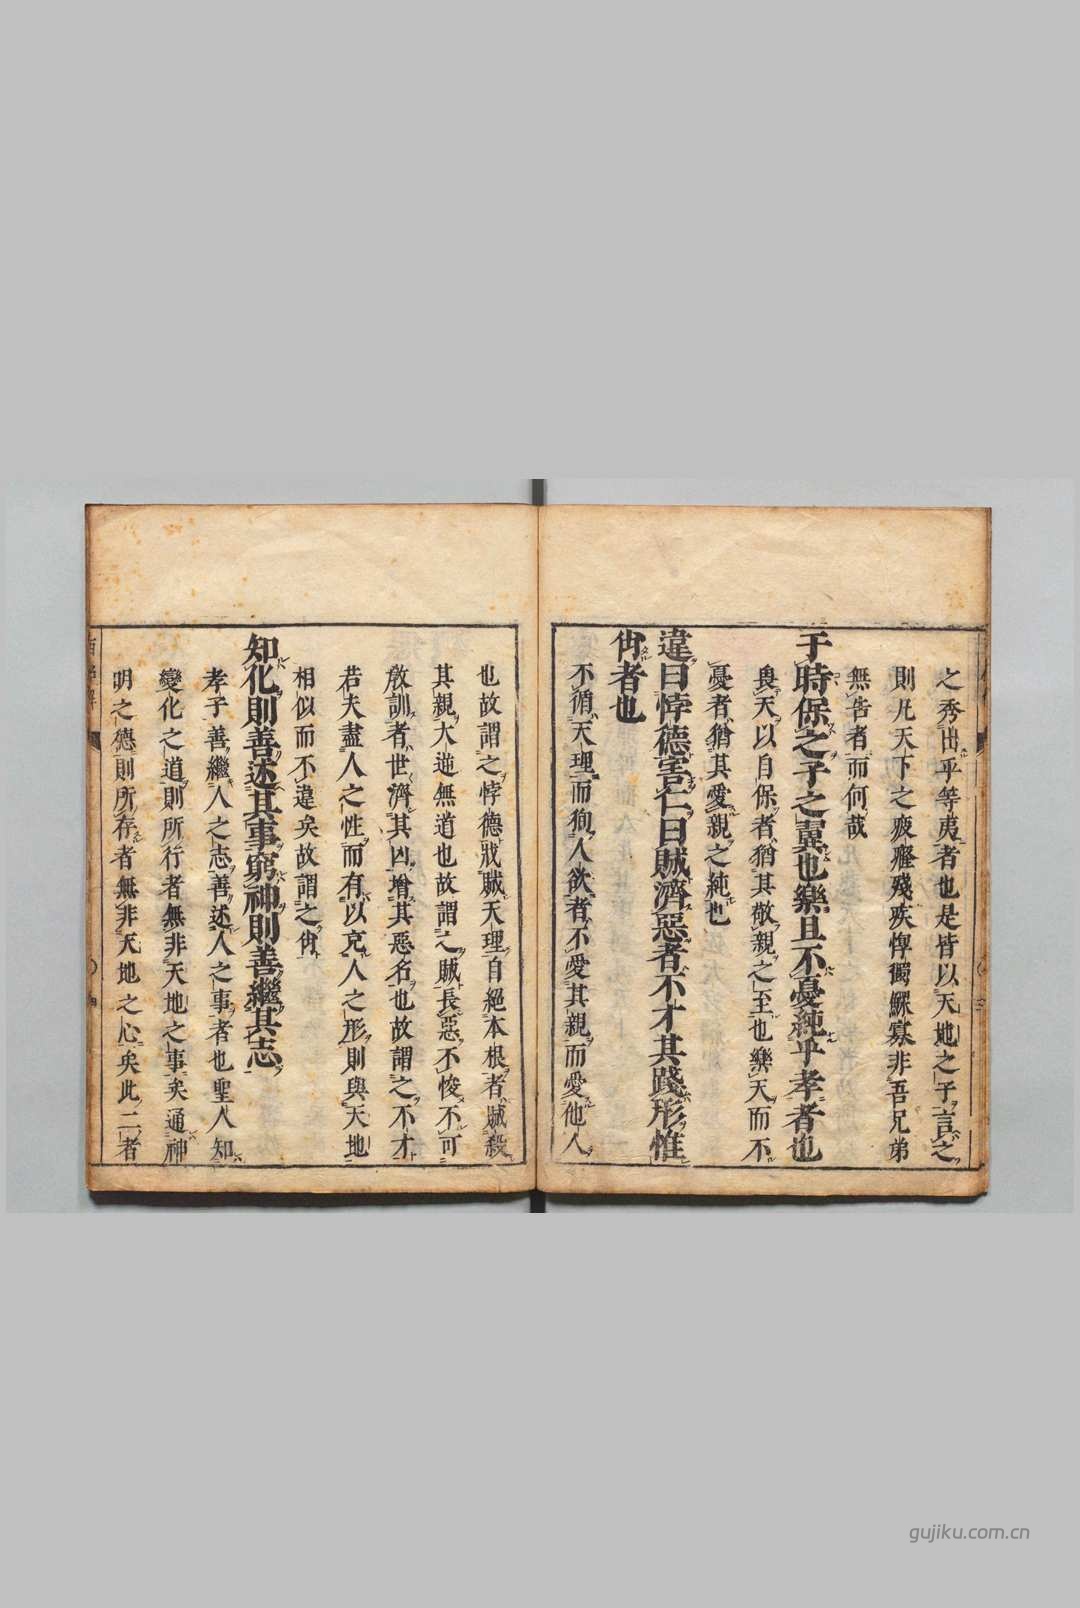 之秀出乎等夷者也是皆以天地之子言之
則凡天下之疲癃殘疾惸獨鰥寡非吾兄弟
無告者而何哉
于時保之子之翼也樂且不憂純乎孝者也
畏天以自保者猶其敬親之至也樂天而不
憂者猶其愛親之純也
違曰悖德害仁曰賊濟惡者不才其踐形惟
肖者也
不循天理而徇人欲者不愛其親而愛他人
也故謂之悖德戕賊天理自絕本根者賊殺
其親大逆無道也故謂之賊長惡不悛不可
敎訓者世濟其凶增其惡名也故謂之不才
若夫盡人之性而有以克人之形則與天地
相似而不違矣故謂之肖
知化則善述其事窮神則善繼其志
孝子善繼人之志善述人之事者也聖人知
變化之道則所行者無非天地之事矣通神
明之德則所存者無非天地之心矣此二者
gujiku.com.cn